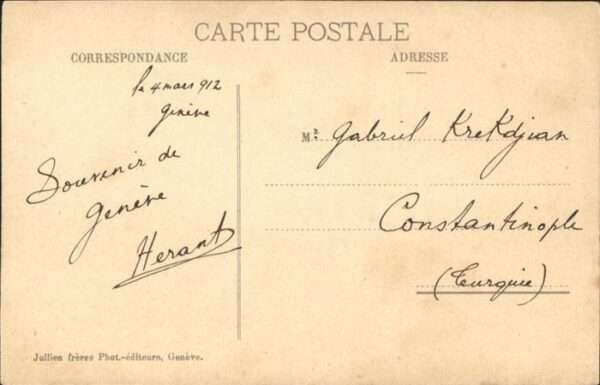 CARTE POSTALE
CORRESPONDANCE
ADRESSE
le 4 mars 912
Genève
Souvenir de
Genève
Herant
Mr. Gabriel Krekdjian
Constantinople
(Turquie)
Jullien frères Phot.-éditeurs, Genève.